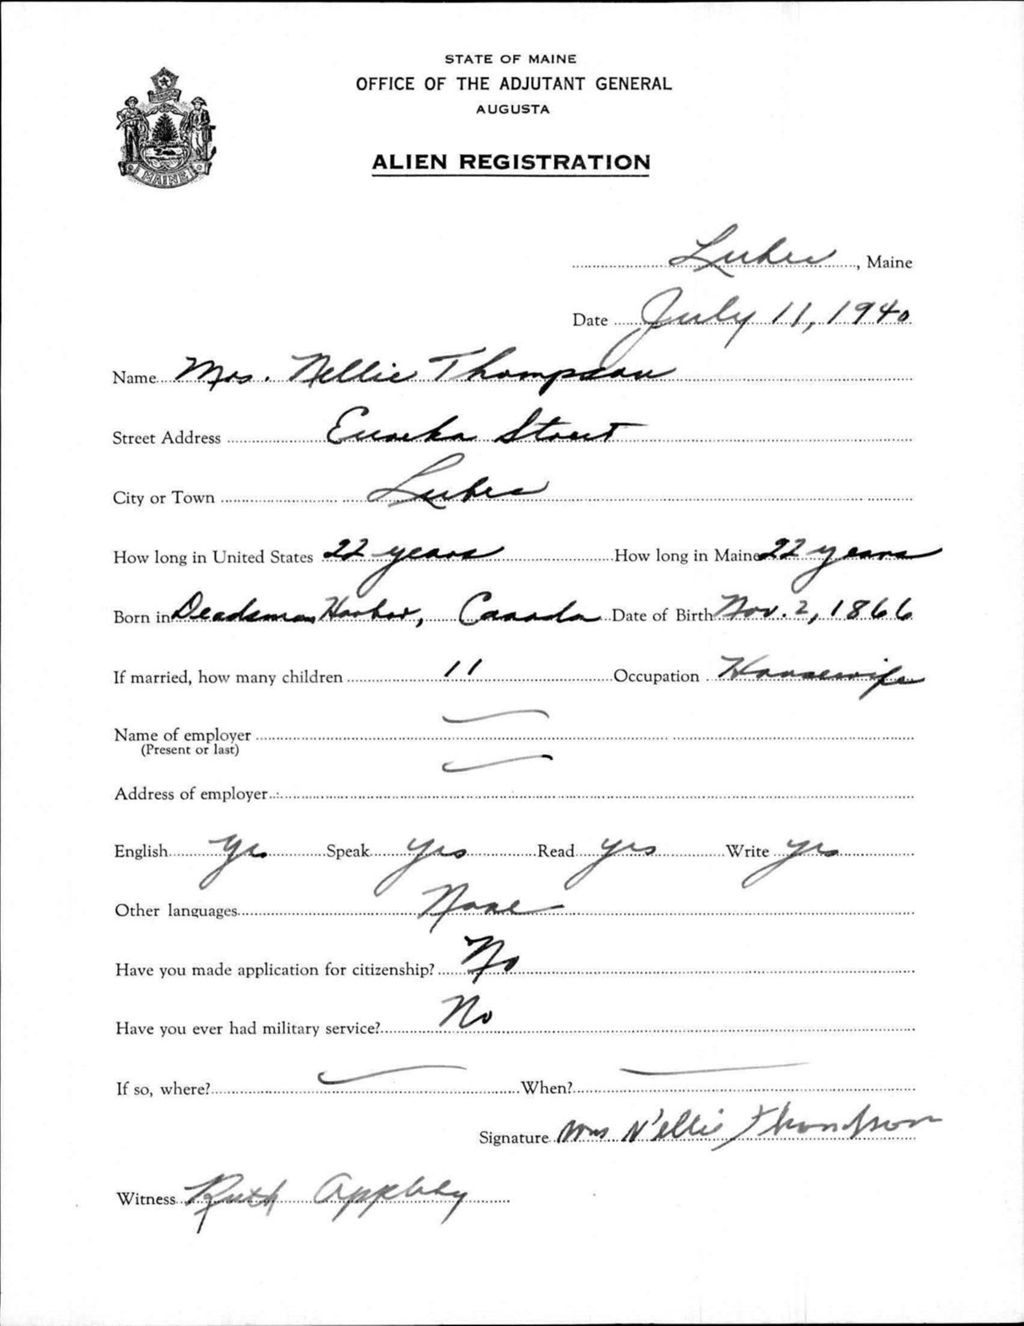 STATE OF MAINE
OFFICE OF THE ADJUTANT GENERAL
AUGUSTA
MAINE
ALIEN REGISTRATION
Lubec, Maine
Date July 11, 1940
Name Mrs. Nellie Thompson
Street Address Eureka Street
City or Town Lubec
How long in United States 22 years How long in Maine 22 years
Born in Deadsman Harbor, Canada Date of Birth Nov. 2, 1866
If married, how many children 11 Occupation Housewife
Name of employer
(Present or last)
Address of employer
English Yes Speak Yes Read Yes Write Yes
Other languages None
Have you made application for citizenship? No
Have you ever had military service? No
If so, where? When?
Signature Mrs Nellie Thompson
Witness Ruth Appleby